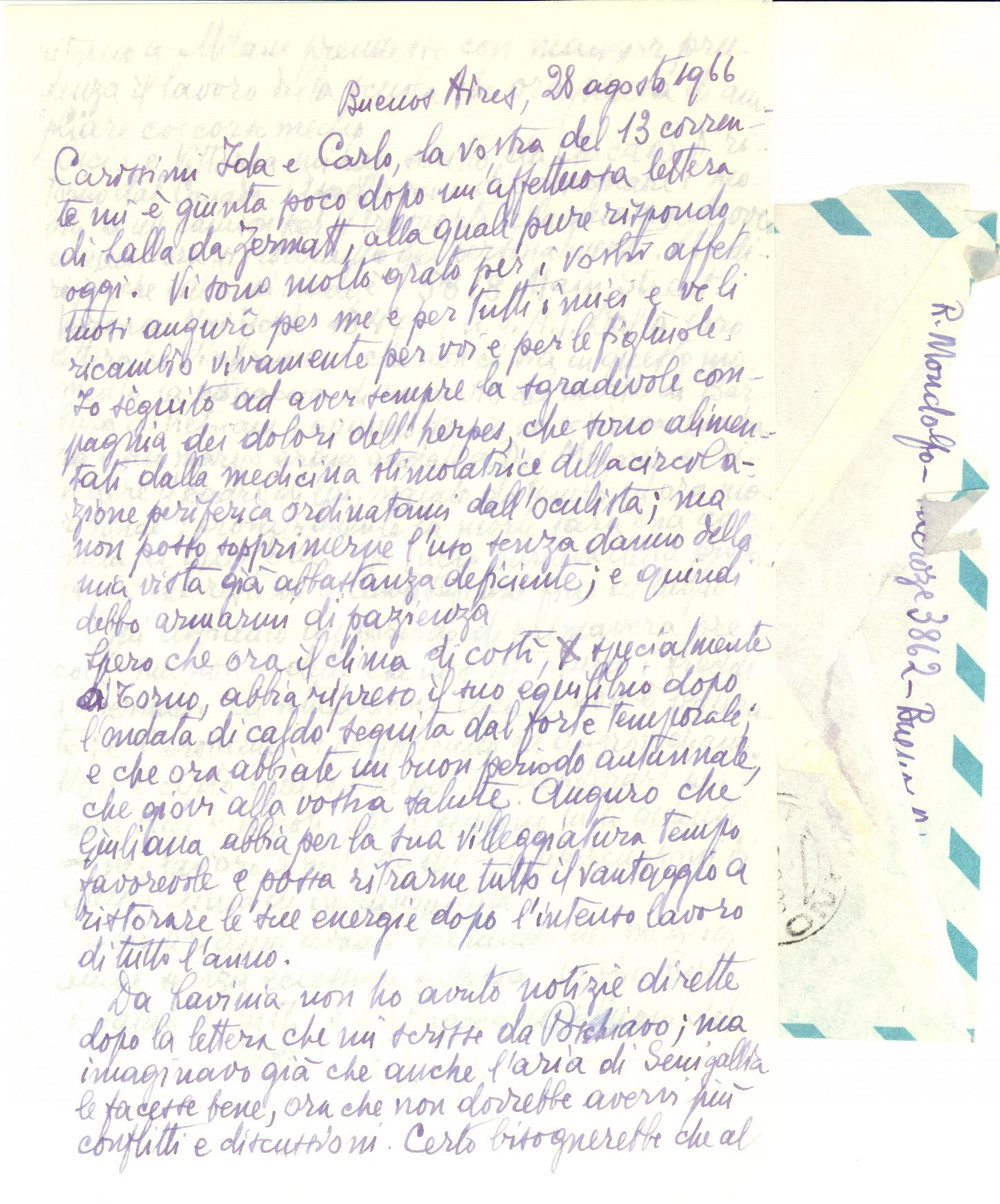 Buenos Aires, 28 agosto 1966
Carissimi Ida e Carlo, la vostra del 13 corren-
te mi è giunta poco dopo un'affettuosa lettera
di Lalla da Zermatt, alla quale pure rispondo
oggi. Vi sono molto grato per i vostri affet-
tuosi auguri per me e per tutti i miei e ve li
ricambio vivamente per voi e per le figliuole.
Io sèguito ad aver sempre la sgradevole com-
pagnia dei dolori dell'herpes, che sono alimen-
tati dalla medicina stimolatrice della circola-
zione periferica ordinatami dall'oculista; ma
non posso sopprimerne l'uso senza danno della
mia vista già abbastanza deficiente; e quindi
debbo armarmi di pazienza
Spero che ora il clima di costì, specialmente
a Torno, abbia ripreso il suo equilibrio dopo
l'ondata di caldo seguita dal forte temporale;
e che ora abbiate un buon periodo autunnale,
che giovi alla vostra salute. Auguro che
Giuliana abbia per la sua villeggiatura tempo
favorevole e possa ritrarne tutto il vantaggio a
ristorare le sue energie dopo l'intenso lavoro
di tutto l'anno.
Da Lavinia non ho avuto notizie dirette
dopo la lettera che mi scrisse da Poschiavo; ma
imaginavo già che anche l'aria di Senigallia
le facesse bene, ora che non dovrebbe avervi più
conflitti e discussioni. Certo bisognerebbe che al
R. Mondolfo - 3862 -